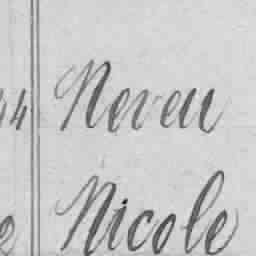 44 Neveu
Nicole